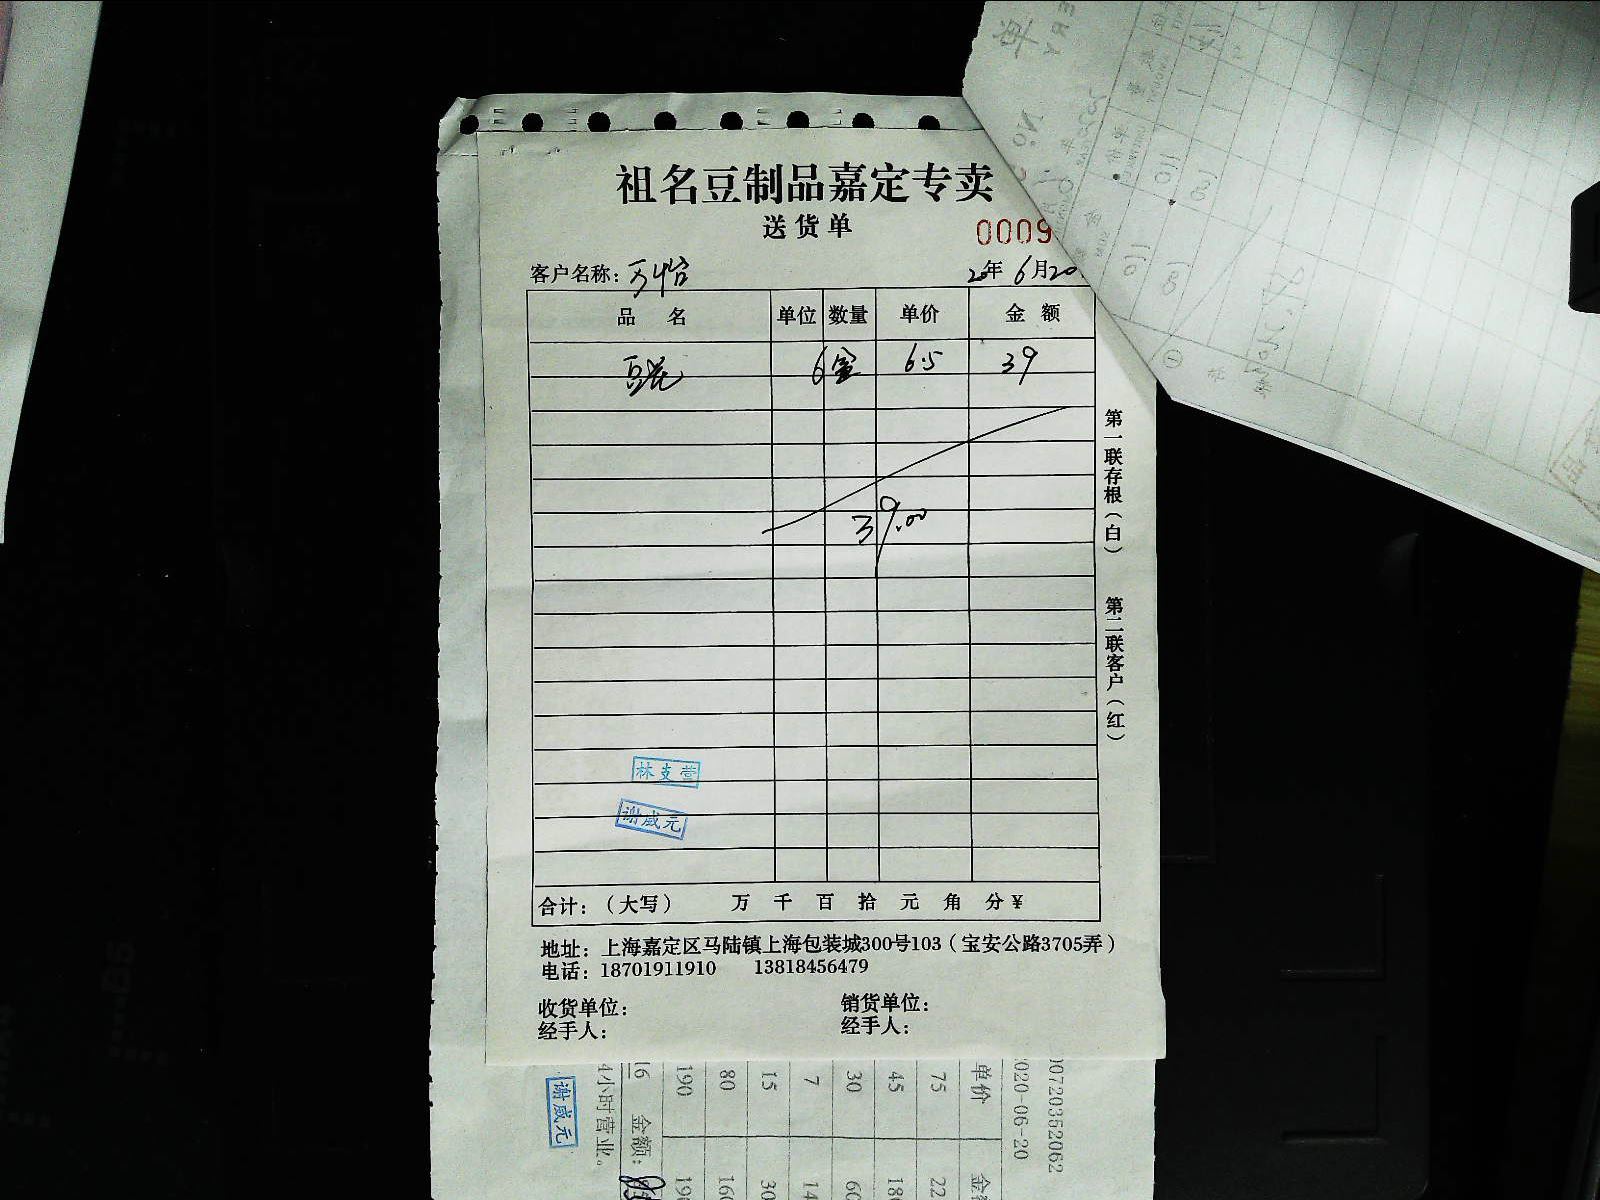 祖名豆制品嘉定专卖
送货单
0009
客户名称：万怡 20年 6月20
品 名 单位 数量 单价 金 额
豆花 6盒 6.5 39
39.00
第一联存根（白）
第二联客户（红）
林支莹
谢威元
合计：（大写） 万 千 百 拾 元 角 分 ¥
地址：上海嘉定区马陆镇上海包装城300号103（宝安公路3705弄）
电话：18701911910 13818456479
收货单位： 销货单位：
经手人： 经手人：
00720352062
2020-06-20
单价 金
75 22
45 18
30 60
7 14
15 30
80 16
190 19
16 金额：
4小时营业。
谢威元